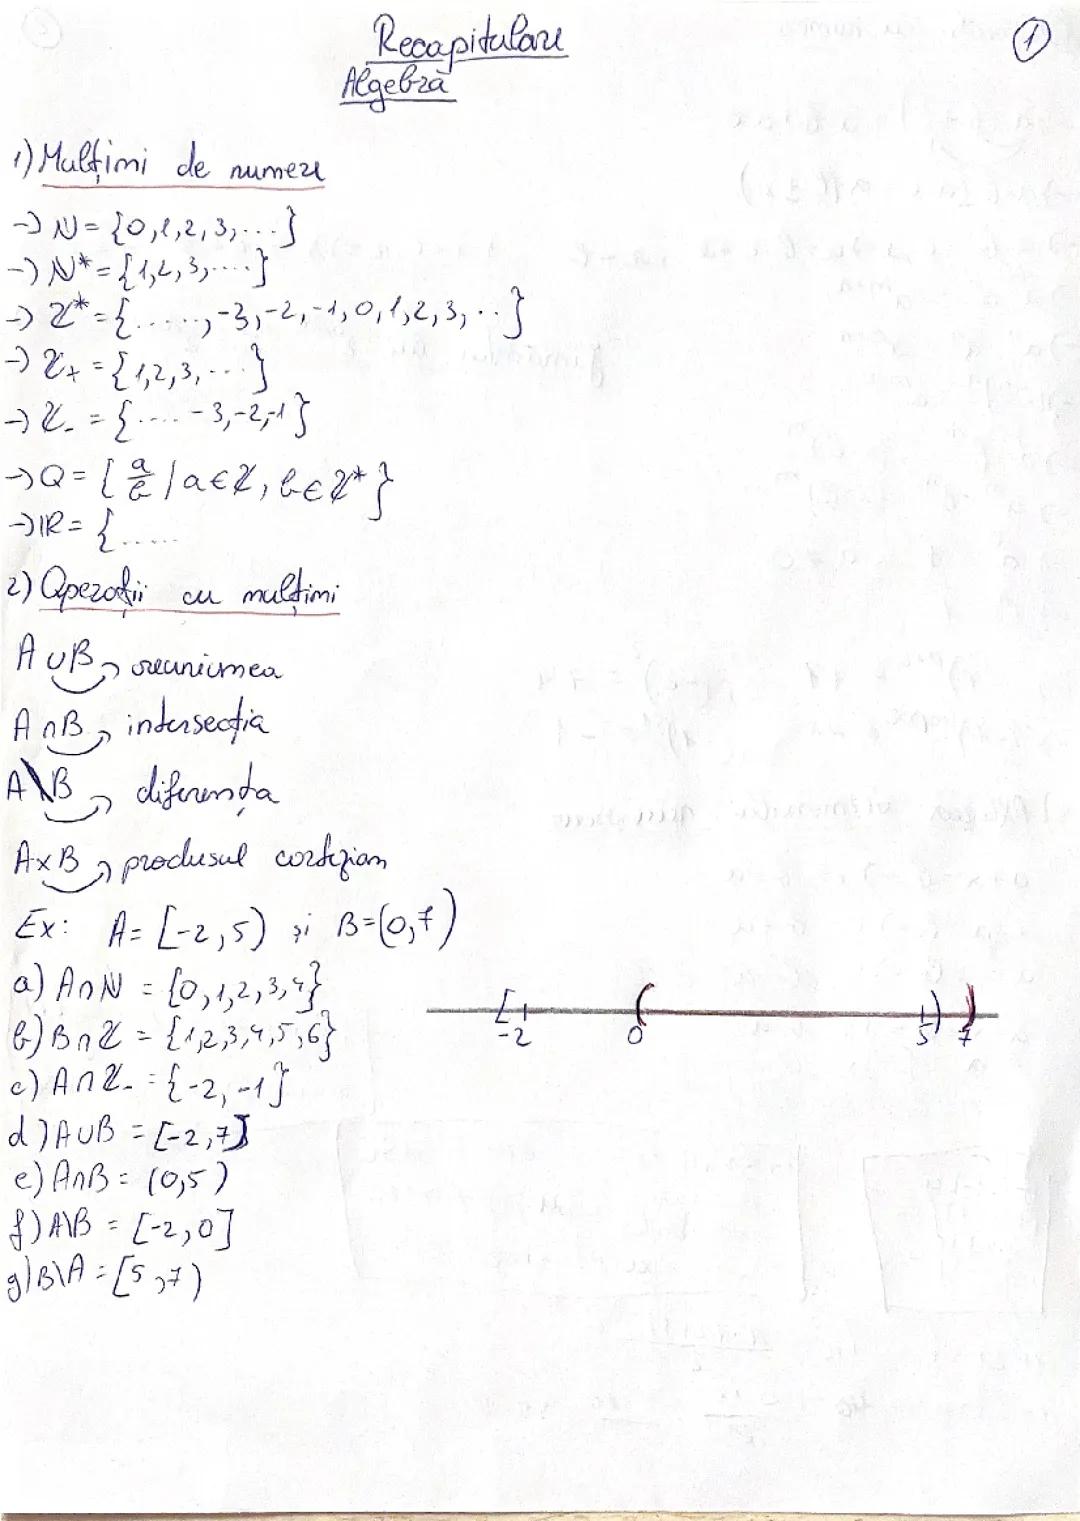 Recapitulare
Algebră
1
1) Mulțimi de numere
→ N = {0,1,2,3,...}
→ N* = {1,2,3,....}
→ Z* = {.....,-3,-2,-1,0,1,2,3,..}
→ Z+ = {1,2,3,...}
→ Z- = {.... -3,-2,-1}
→ Q = { a/b | a∈Z, b∈Z* }
→ IR = {.....
2) Operații cu mulțimi
A∪B → reuniunea
A∩B → intersecția
A\B → diferența
A×B → produsul cartezian
Ex: A = [-2,5) și B=(0,7)
a) A∩N = {0,1,2,3,4}
b) B∩Z = {1,2,3,4,5,6}
c) A∩Z- = {-2,-1}
d) A∪B = [-2,7]
e) A∩B = (0,5)
f) A\B = [-2,0]
g) B\A = [5,7)
[ ( ) )
-2 0 5 7